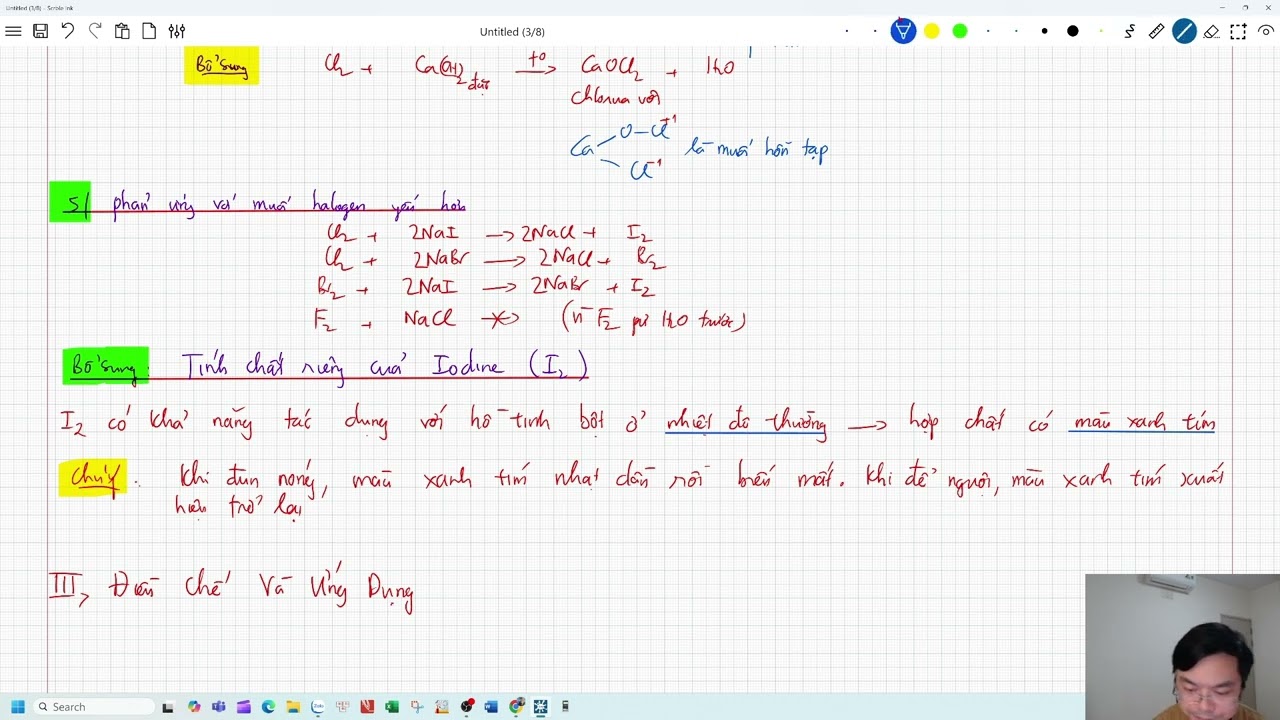 Untitled (3/8) - Scrble Ink
Untitled (3/8)
Bổ sung Cl2 + Ca(OH)2 đặc t° → CaOCl2 + H2O
chlorua vôi
Ca O-Cl+1 Cl-1 là muối hỗn tạp
5/ phản ứng với muối halogen yếu hơn
Cl2 + 2NaI → 2NaCl + I2
Cl2 + 2NaBr → 2NaCl + Br2
Br2 + 2NaI → 2NaBr + I2
F2 + NaCl ↛ (vì F2 pứ H2O trước)
Bổ sung: Tính chất riêng của Iodine (I2)
I2 có khả năng tác dụng với hồ tinh bột ở nhiệt độ thường → hợp chất có màu xanh tím
Chú ý: Khi đun nóng, màu xanh tím nhạt dần rồi biến mất. Khi để nguội, màu xanh tím xuất
hiện trở lại
III, Điều chế Và Ứng Dụng
Search